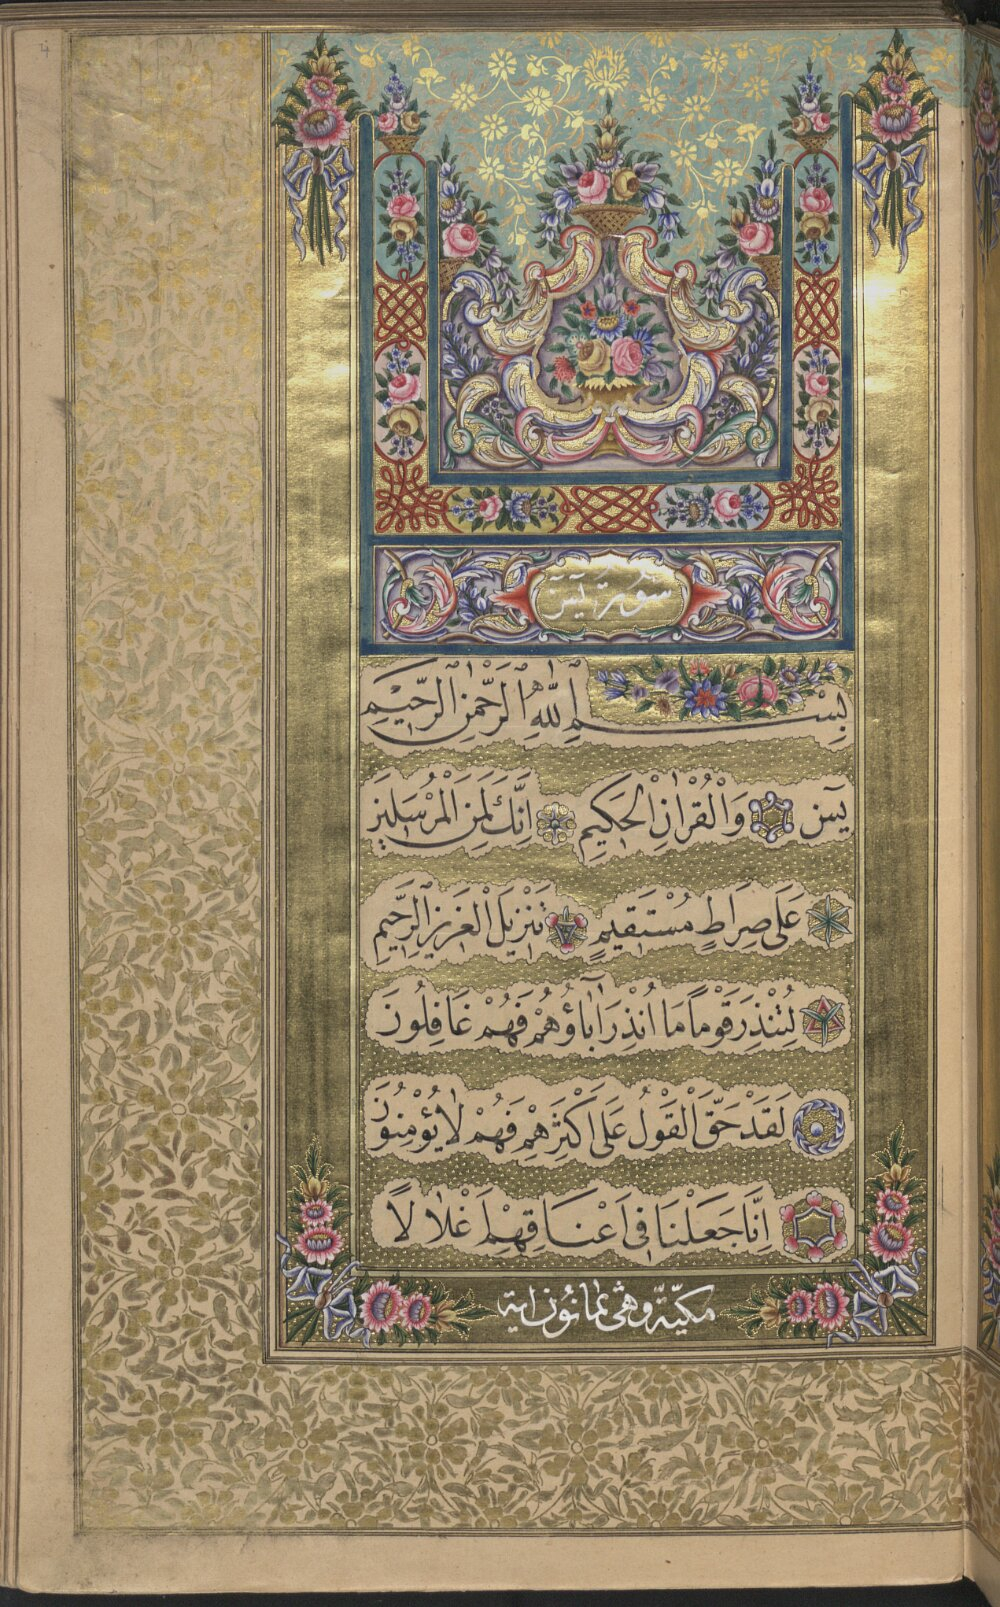 سُورَة يٰسٓ
بِسْمِ اللّٰهِ الرَّحْمٰنِ الرَّحِيْمِ
يٰسٓ وَالْقُرْاٰنِ الْحَكِيْمِ اِنَّكَ لَمِنَ الْمُرْسَلِيْنَ
عَلٰى صِرَاطٍ مُسْتَقِيْمٍ تَنْزِيْلَ الْعَزِيْزِ الرَّحِيْمِ
لِتُنْذِرَ قَوْمًا مَا اُنْذِرَ اٰبَاؤُهُمْ فَهُمْ غَافِلُونَ
لَقَدْ حَقَّ الْقَوْلُ عَلٰى اَكْثَرِهِمْ فَهُمْ لَا يُؤْمِنُونَ
اِنَّا جَعَلْنَا فِى اَعْنَاقِهِمْ اَغْلَالًا
مكيّة وهى ثمانون اية